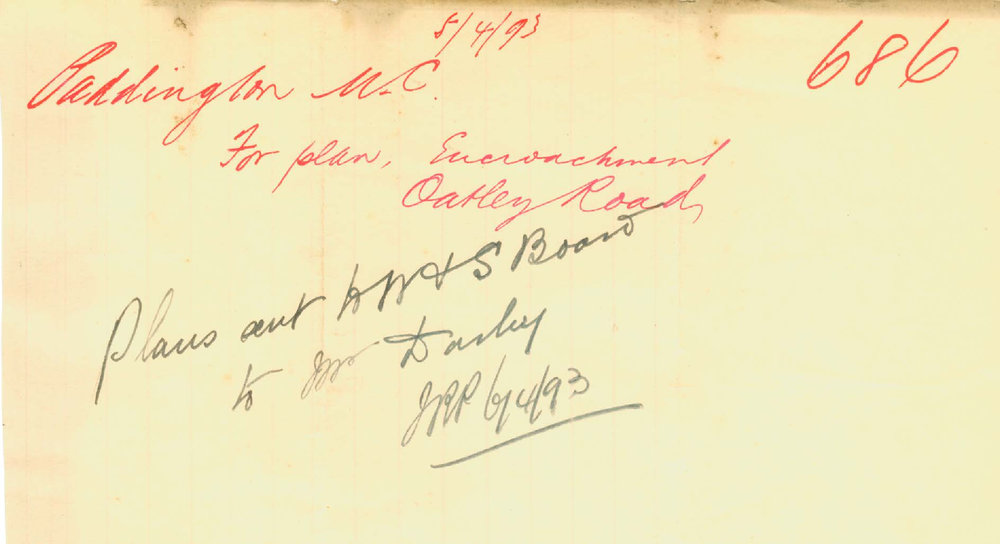 5/4/93
686
Paddington M.C.
For plan, Encroachment
Oatley Road,
Plans sent to W & S Board
to Mr Darley
JRR 6/4/93